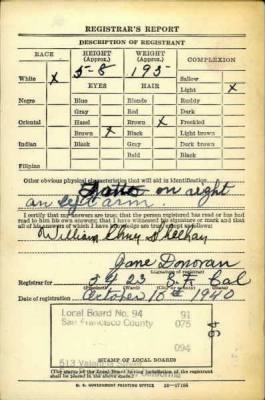 REGISTRAR'S REPORT
DESCRIPTION OF REGISTRANT
RACE HEIGHT (Approx.) WEIGHT (Approx.) COMPLEXION
White X 5-8 195 Sallow
EYES HAIR Light X
Negro Blue Blonde Ruddy
Gray Red Dark
Oriental Hazel Brown X Freckled
Brown X Black Light brown
Indian Black Gray Dark brown
Bald Black
Filipino
Other obvious physical characteristics that will aid in identification
on right
arm.
I certify that my answers are true; that the person registered has read or has had
read to him his own answers; that I have witnessed his signature or mark and that
all of his answers of which I have knowledge are true, except as follows:
William
Jane Donovan
(Signature of registrar)
Registrar for 23 S.F. Cal
(Precinct) (Ward) (City or county) (State)
Date of registration October 16th 1940
Local Board No. 94 91
San Francisco County 075
094
94
513 Valencia
STAMP OF LOCAL BOARD
(The stamp of the Local Board having jurisdiction of the registrant
shall be placed in the above space)
U. S. GOVERNMENT PRINTING OFFICE 16-17105